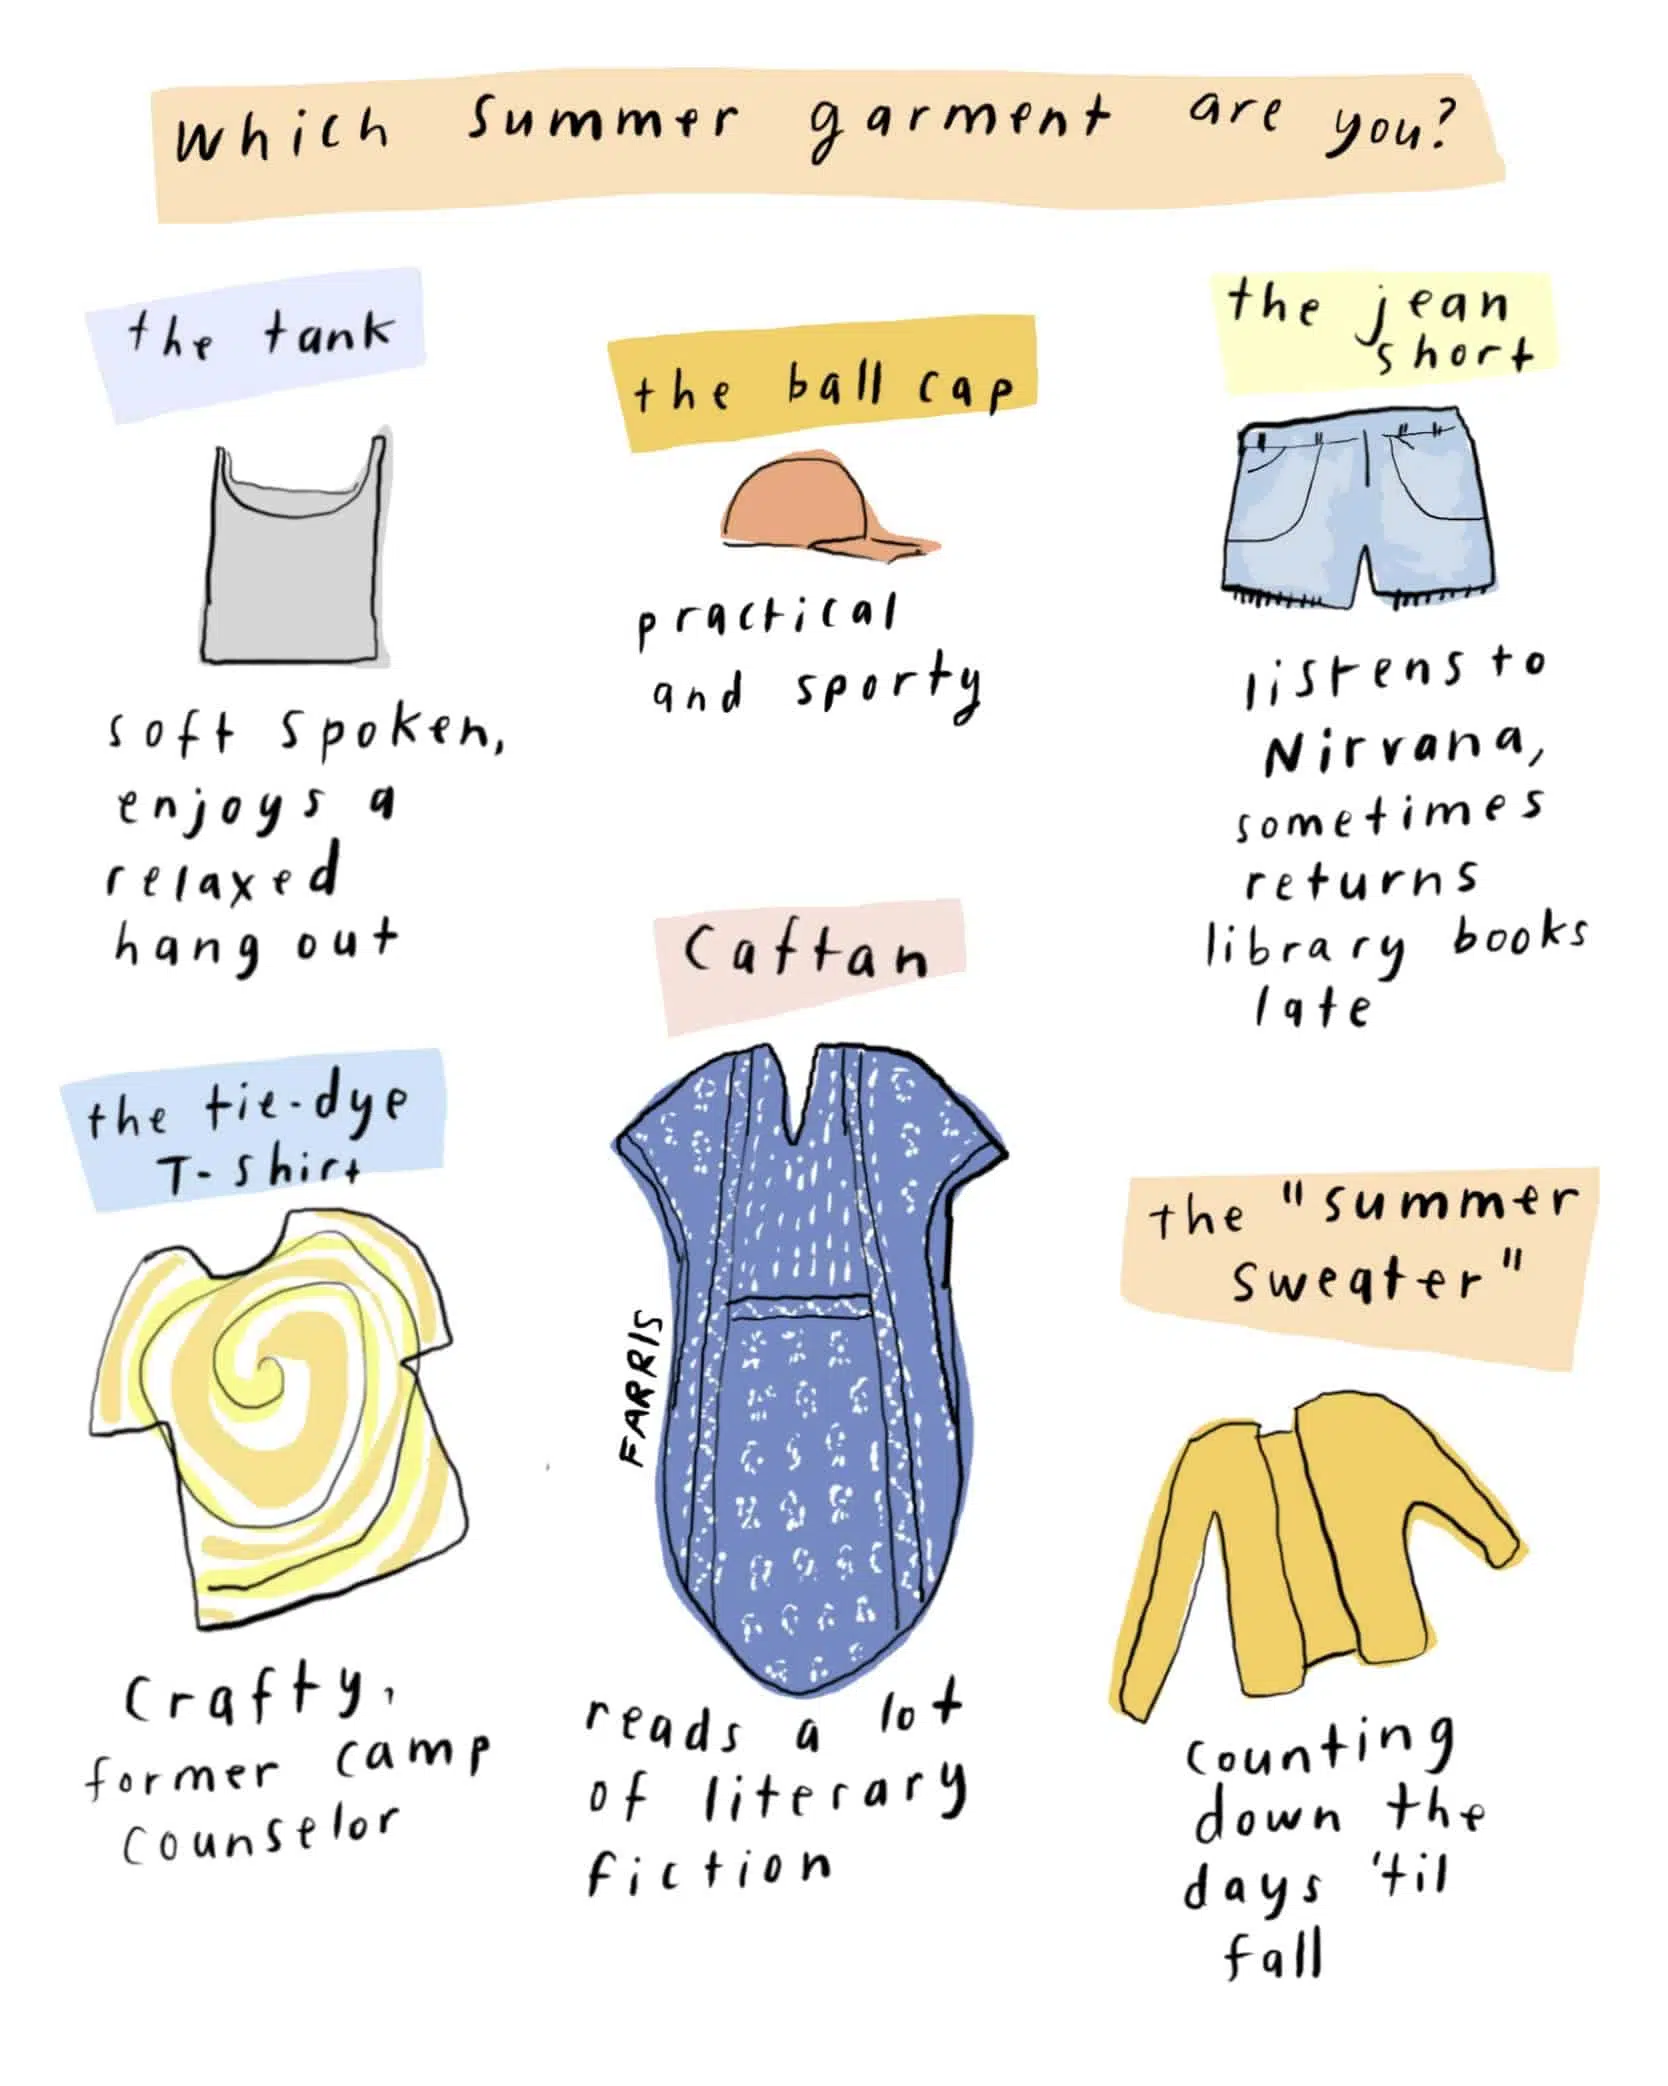 which summer garment are you?
the tank
soft spoken,
enjoys a
relaxed
hang out
the ball cap
practical
and sporty
the jean
short
listens to
Nirvana,
sometimes
returns
library books
late
the tie-dye
T-shirt
Crafty,
former camp
counselor
Caftan
FARRIS
reads a lot
of literary
fiction
the "summer
sweater"
counting
down the
days 'til
fall